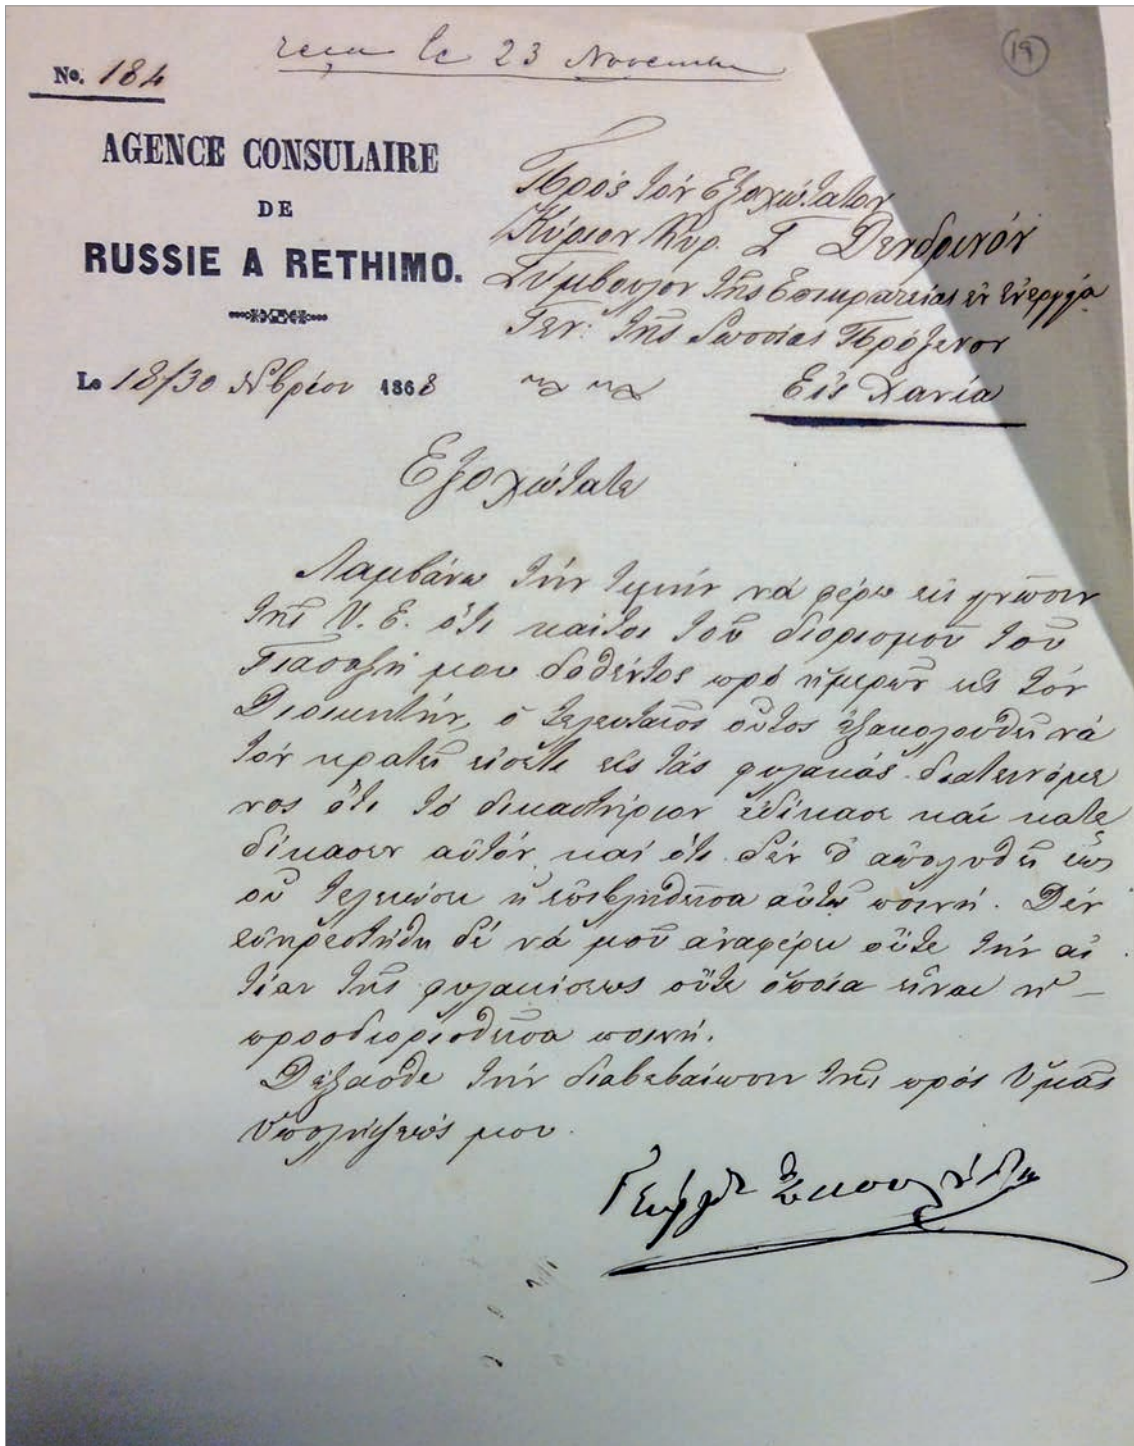 reçu le 23 Novembre
19
No. 184
AGENCE CONSULAIRE
DE
RUSSIE A RETHIMO.
Le 18/30 Νβρίου 1868
Πρός τόν Εξοχώτατον
Κύριον Κυρ. Σ Δενδρινόν
Σύμβουλον τῆς Επικρατείας ἐν ἐνεργείᾳ
Γεν: τῆς Ρωσσίας Πρόξενον
Εἰς Χανία
Εξοχώτατε
Λαμβάνω τήν τιμήν νά φέρω εἰς γνῶσιν
τῆς Υ. Ε. ὅτι καίτοι τοῦ διορισμοῦ τοῦ
Γιασαξῆ μου δοθέντος πρό ἡμερῶν εἰς τόν
Διοικητήν, ὁ τελευταῖος οὗτος ἐξακολουθεῖ νά
τόν κρατεῖ εἰσέτι εἰς τάς φυλακάς διατεινόμε
νος ὅτι τό δικαστήριον ἐδίκασε καί κατε
δίκασεν αὐτόν καί ὅτι δέν θ ἀπολυθεῖ ἕως
οὗ τελειώσει ἡ ἐπιβληθεῖσα αὐτῷ ποινή. Δέν
εὐηρεστήθη δέ νά μοῦ ἀναφέρει οὔτε τήν αἰ
τίαν τῆς φυλακίσεως οὔτε ὁποία εἶναι ἡ –
προσδιορισθεῖσα ποινή.
Δέξασθε τήν διαβεβαίωσιν τῆς πρός Ὑμᾶς
Ὑπολήψεώς μου.
Γεώργιος Σκουλούδης